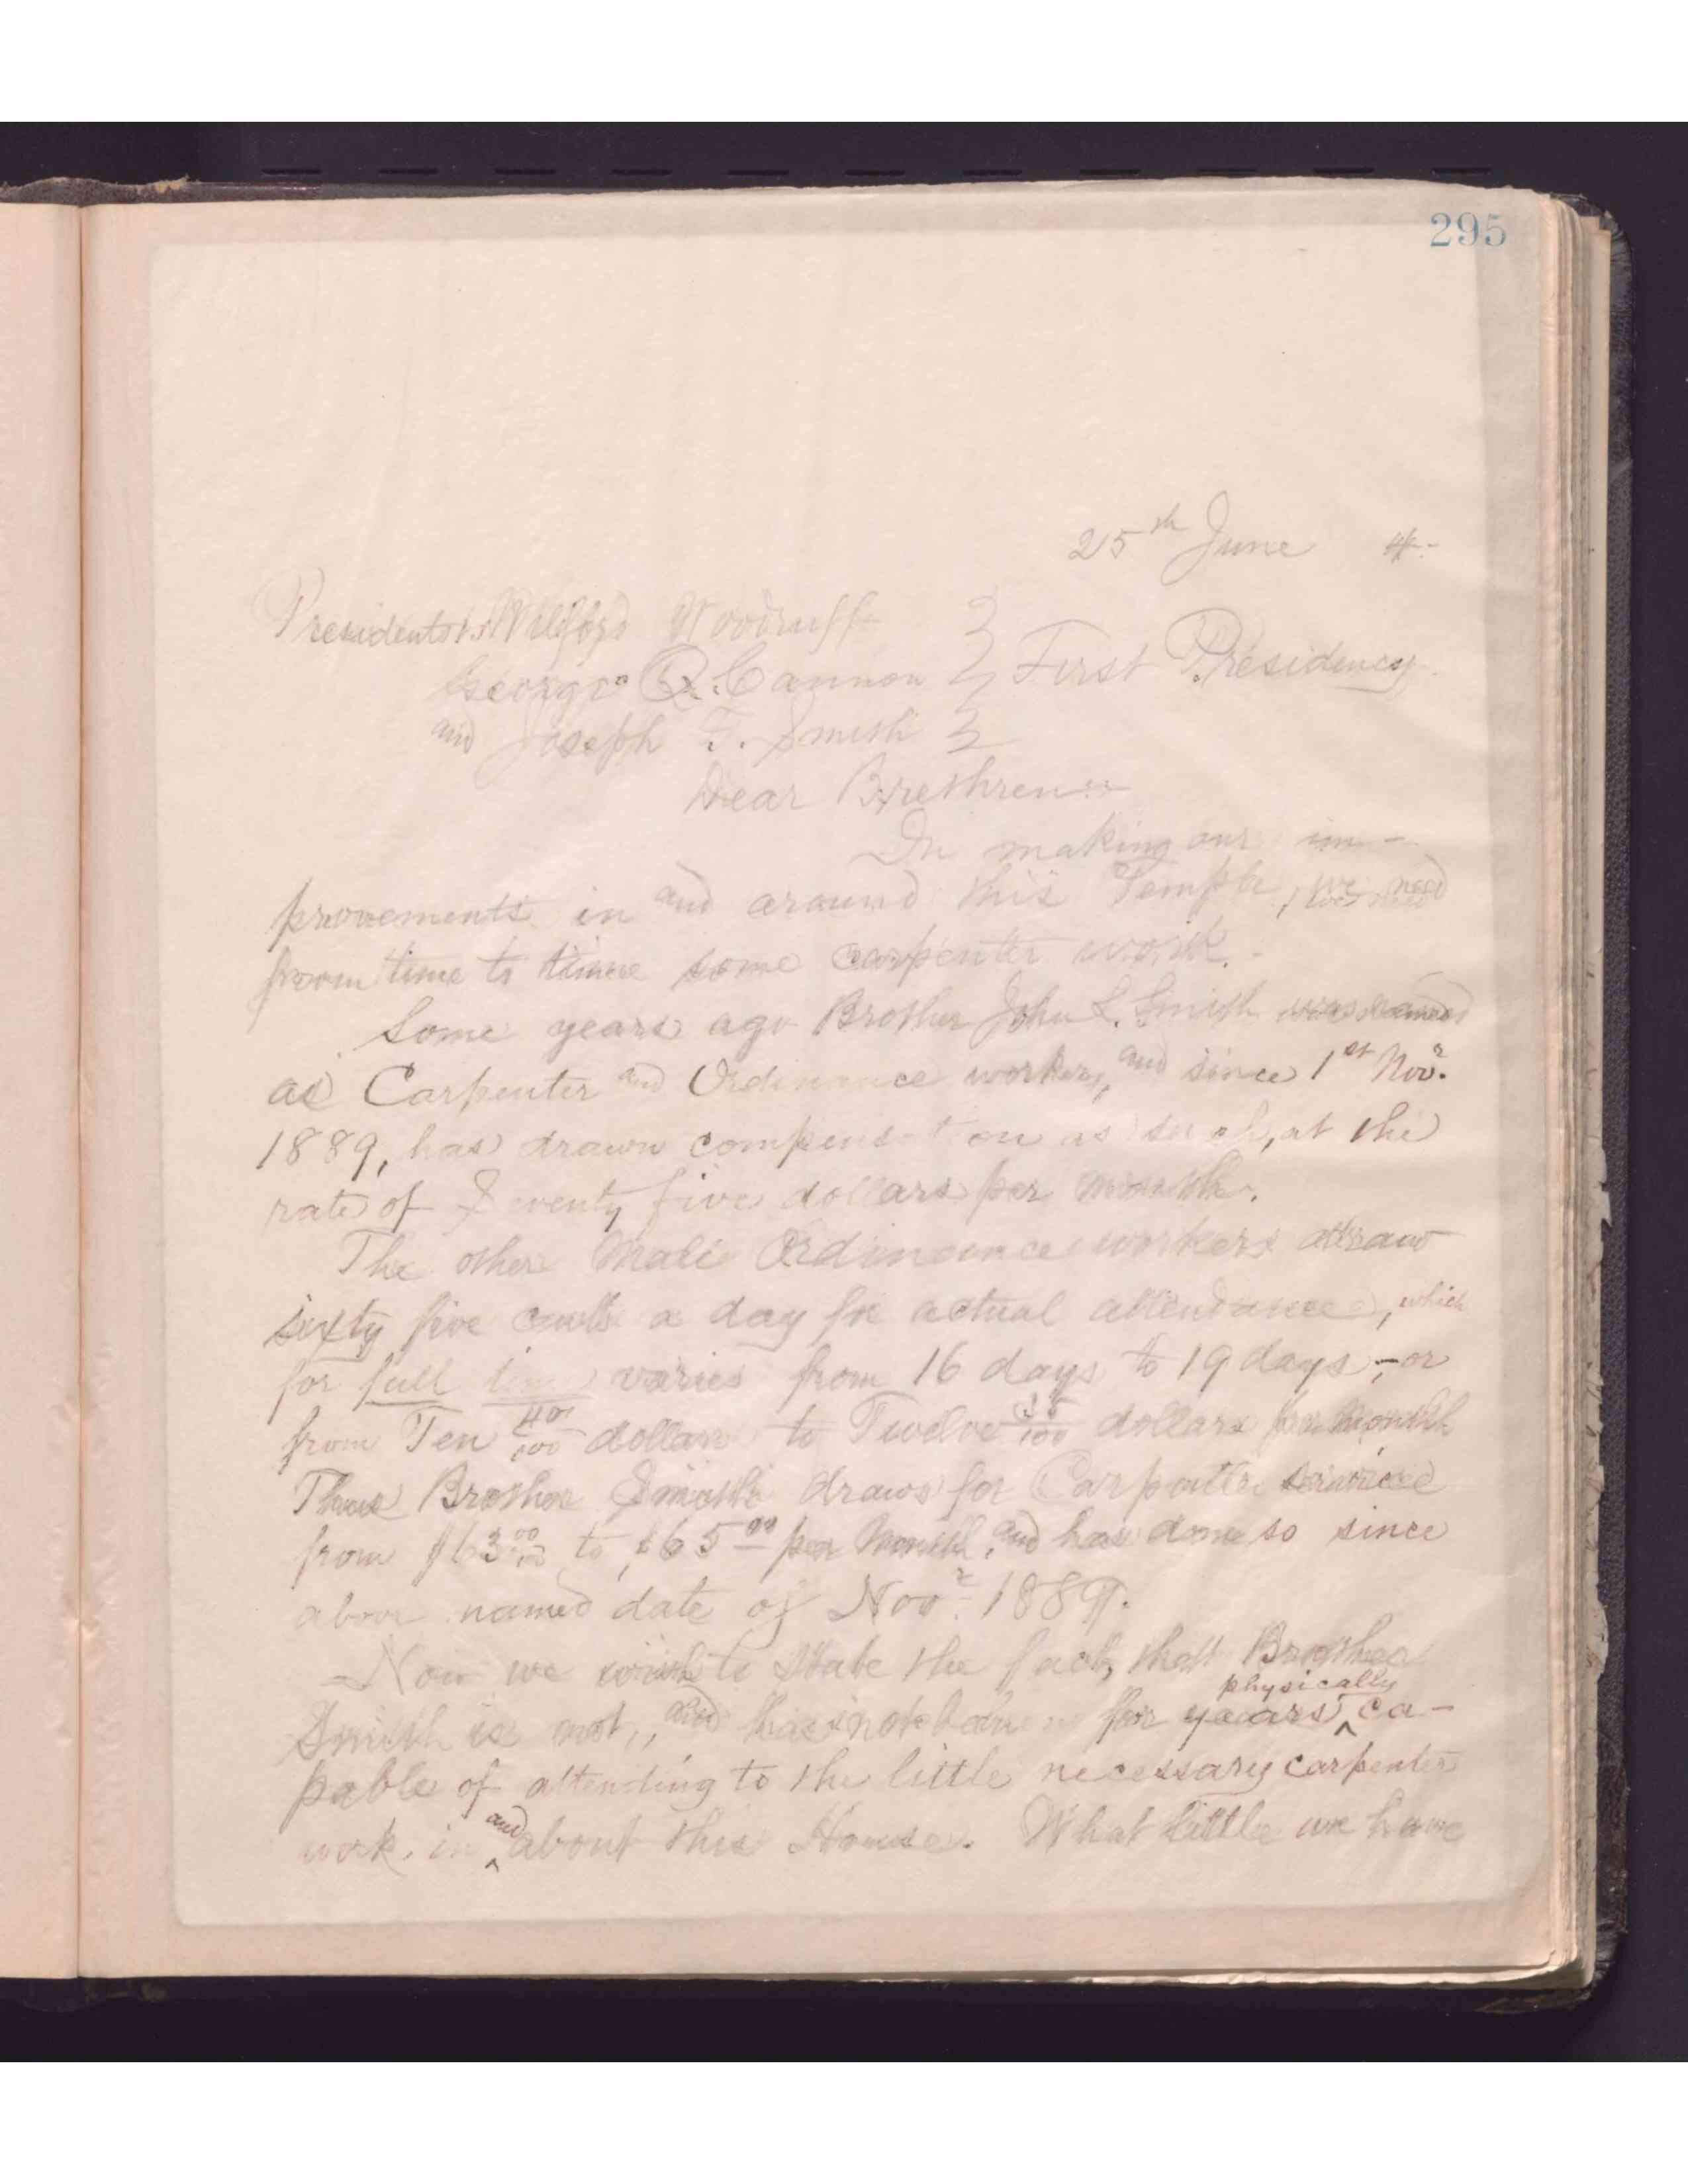 295
25th June 4.-
Presidents: Wilford Woodruff
George Q. Cannon } First Presidency.
and Joseph F. Smith
Dear Brethren:-
In making our im-
provements in and around this Temple, we need
from time to time some carpenter work.-
Some years ago Brother John L. Smith was named
as Carpenter and Ordinance worker, and since 1st Novr.
1889, has drawn compensation as such, at the
rate of Seventy five dollars per month.
The other Male Ordinance workers draw
sixty five cents a day for actual attendance, which
for full time varies from 16 days to 19 days,-or
from Ten 40/100 dollars to Twelve 35/100 dollars per Month
Thus Brother Smith draws for Carpenter service
from $63.00 to $65.00 per Month, and has done so since
above named date of Novr. 1889.
Now we wish to state the fact, that Brother
physically
Smith is not, and has not been for years ^ ca-
pable of attending to the little necessary carpenter
work, in ^and about this House. What little we have